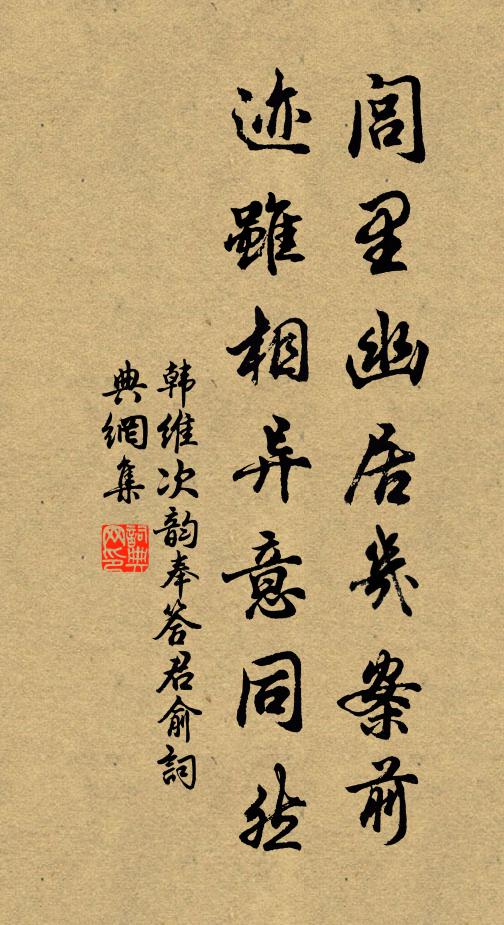 闾里幽居几案前
迹雖相异意同然
韩维次韵奉答君俞詞
典網集
詞典网印